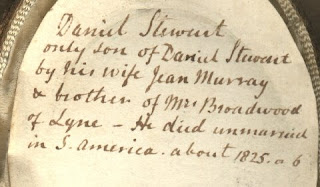 Daniel Stewart
only son of Daniel Stewart
by his wife Jean Murray
& brother of Mrs Broadwood
of Lyne – He died unmarried
in S. america. about 1825. or 6